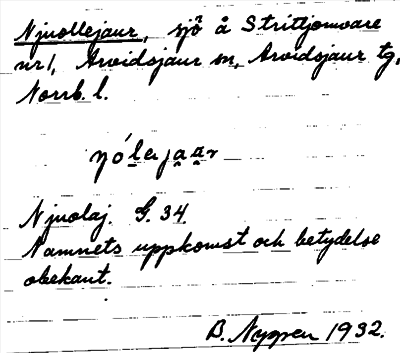 Njuollejaur, sjö å Strittjomvare
nr1, Arvidsjaur sn, Arvidsjaur tg,
Norrb. l.
ŋó̀lejaar
Njuolaj. G. 34.
Namnets uppkomst och betydelse
obekant.
B. Nyppen 1932.